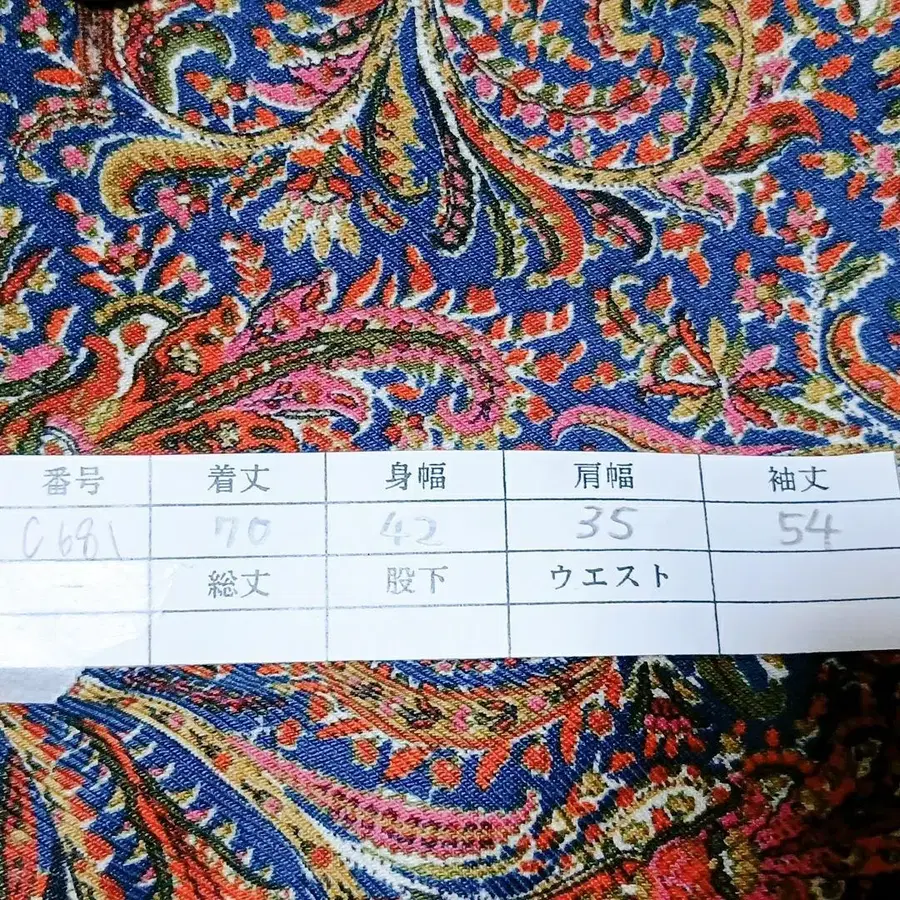 番号 着丈 身幅 肩幅 袖丈
C681 70 42 35 54
総丈 股下 ウエスト